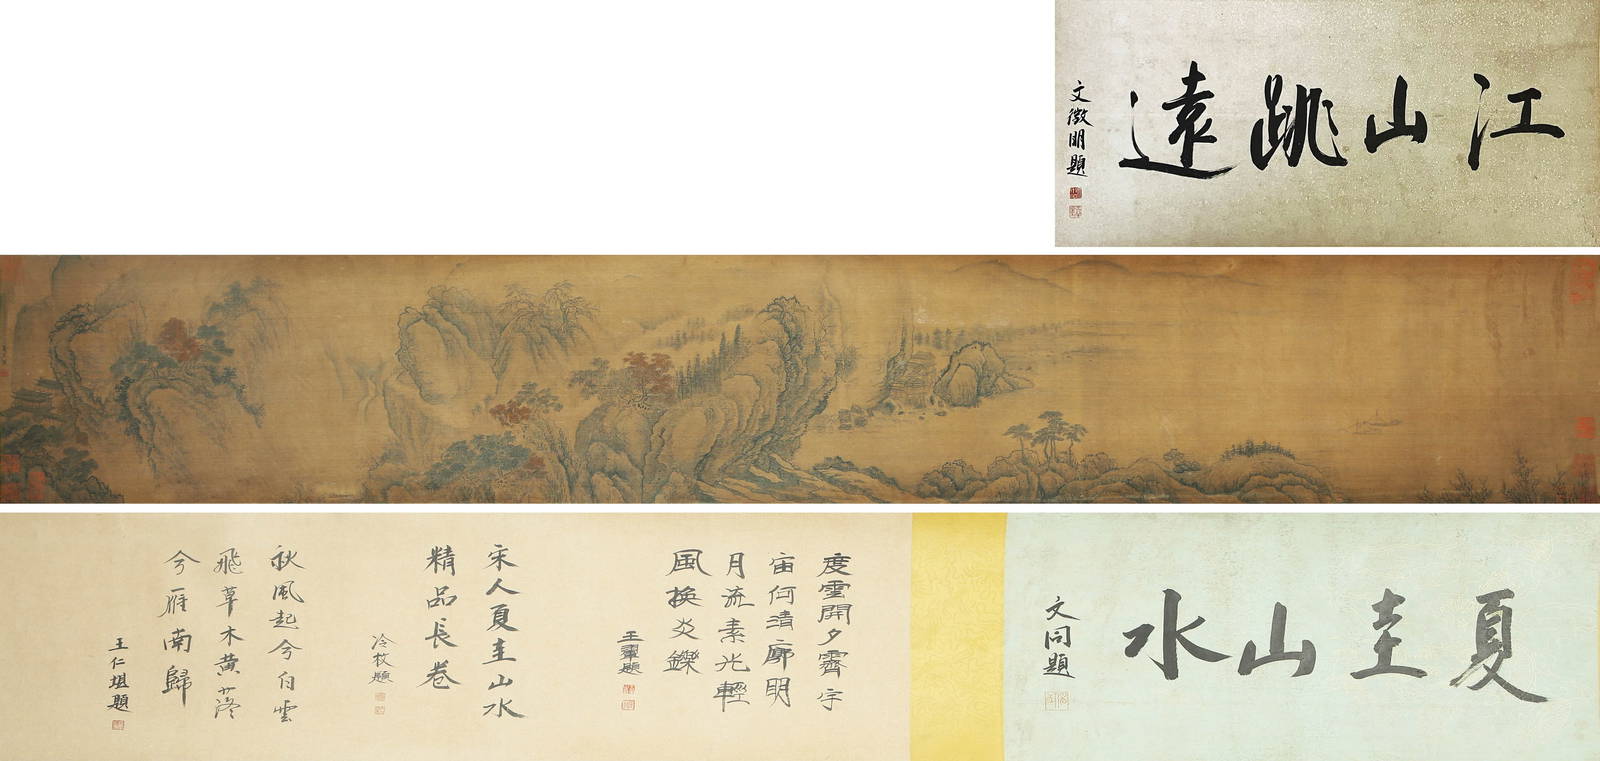 江山跳遠
文徵明題
夏圭山水
文同題
度雲開夕霽宇
宙何清廓明
月流素光輕
風換炎鑠
王翬題
宋人夏圭山水
精品長卷
冷枚題
秋風起兮白雲
飛草木黃落
兮雁南歸
王仁堪題